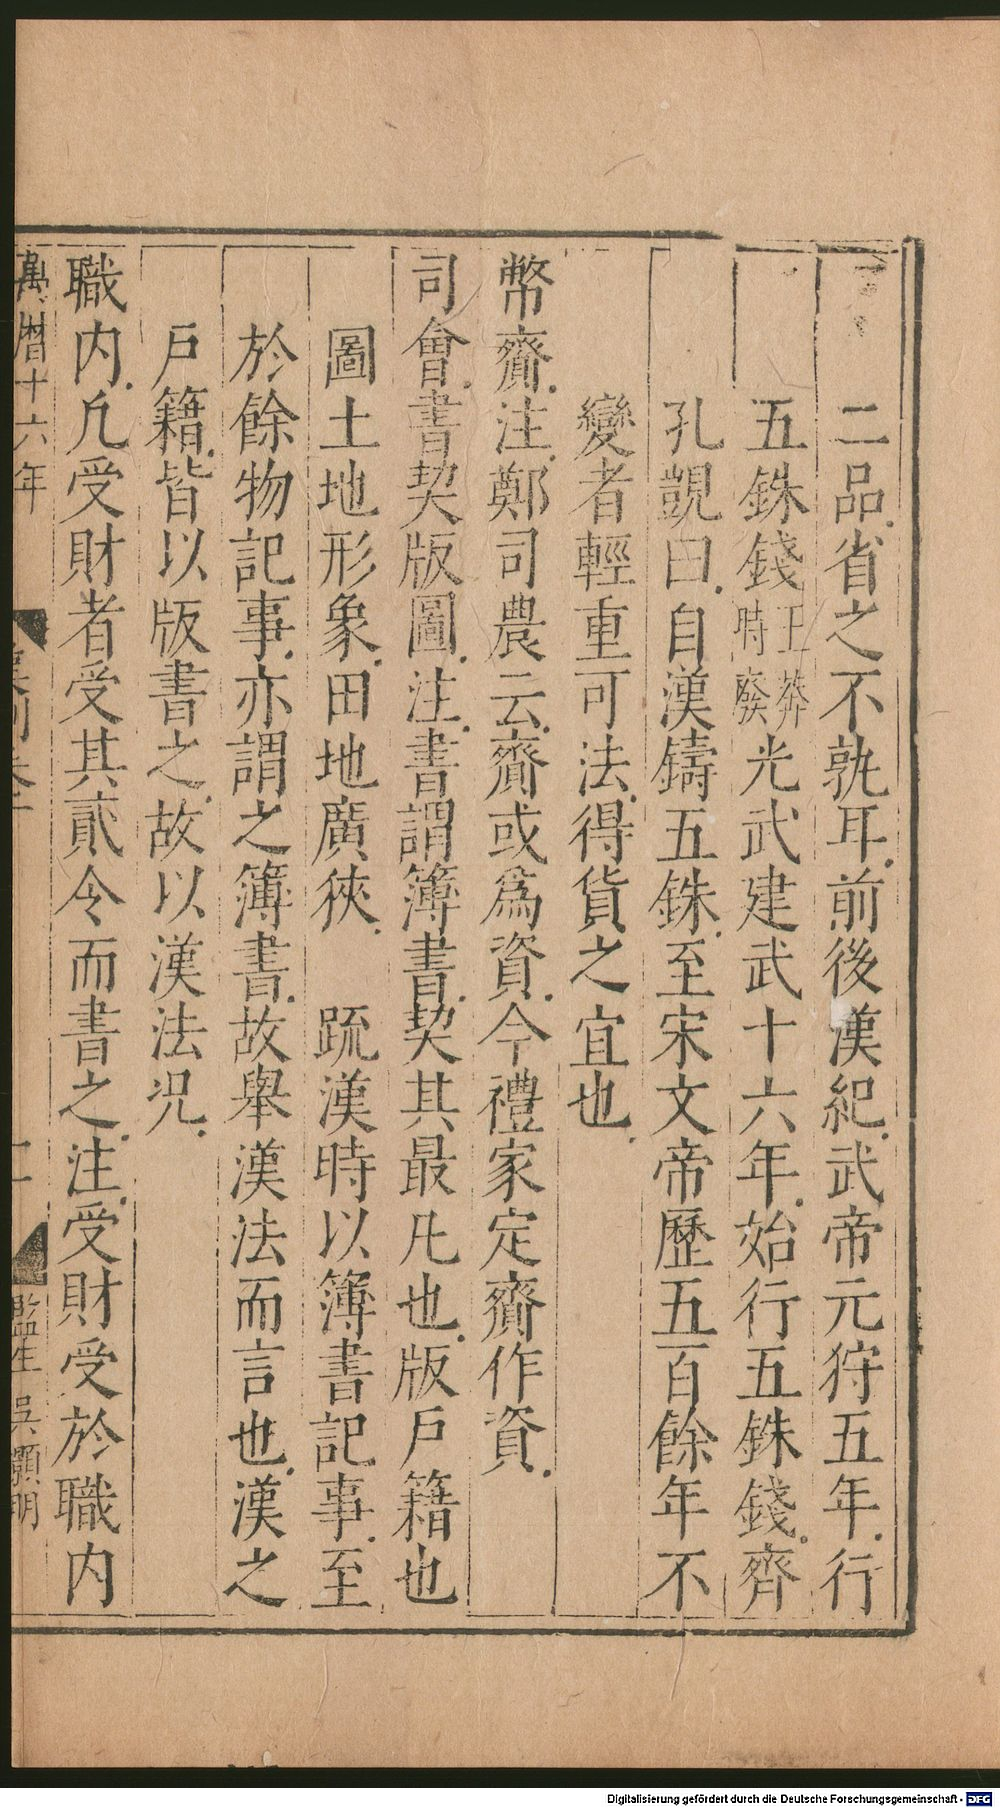 二品省之不孰耳前後漢紀武帝元狩五年行
五銖錢王莽時廢光武建武十六年始行五銖錢齊
孔覬曰自漢鑄五銖至宋文帝歷五百餘年不
變者輕重可法得貨之宜也
幣齎注鄭司農云齎或爲資今禮家定齎作資
司會書契版圖注書謂簿書契其最凡也版戶籍也
圖土地形象田地廣狹　䟽漢時以簿書記事至
於餘物記事亦謂之簿書故舉漢法而言也漢之
戶籍皆以版書之故以漢法況
職内凡受財者受其貳令而書之注受財受於職内
萬曆十六年
監生吳顯明
Digitalisierung gefördert durch die Deutsche Forschungsgemeinschaft - DFG